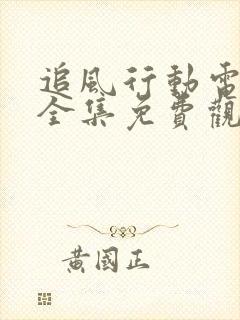 追風行動電
全集免費觀
黃國正